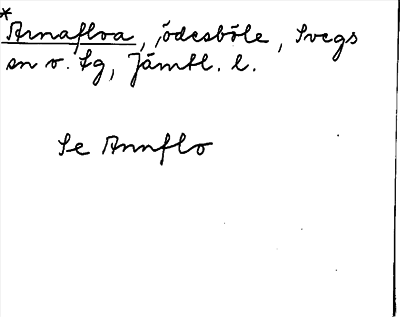 *
Arnaflva, ödesböle, Svegs
sn o. tg, Jämtl. l.
Se Annflo